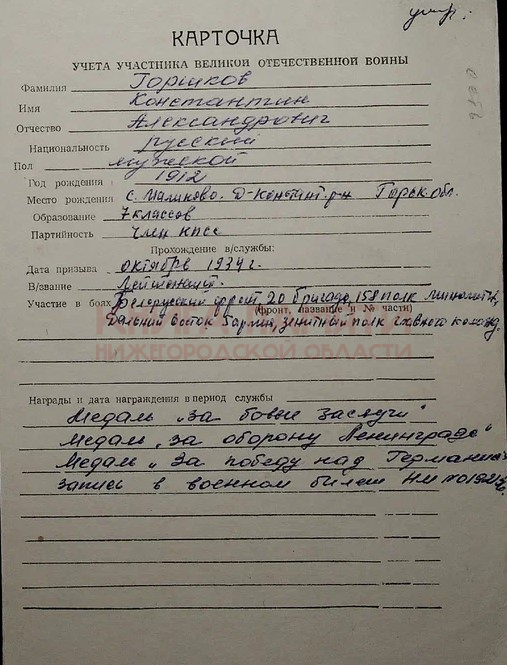 умер.
КАРТОЧКА
УЧЕТА УЧАСТНИКА ВЕЛИКОЙ ОТЕЧЕСТВЕННОЙ ВОЙНЫ
Фамилия Горшков
Имя Константин
Отчество Александрович
Национальность русский
Пол мужской
Год рождения 1912
Место рождения с. Маликово. Д-Констант. р-н Горьк. обл.
Образование 7 классов
Партийность член КПСС
Прохождение в/службы:
Дата призыва октябрь 1934 г.
В/звание Лейтенант.
Участие в боях Белорусский фронт, 20 бригада, 158 полк
(фронт, название и № части)
Дальний Восток зенитный полк главного команд.
КНИГА ПАМЯТИ
НИЖЕГОРОДСКОЙ ОБЛАСТИ
Награды и дата награждения в период службы
Медаль „За боевые заслуги"
Медаль „За оборону Ленинграда"
Медаль „За победу над Германией
запись в военном билете